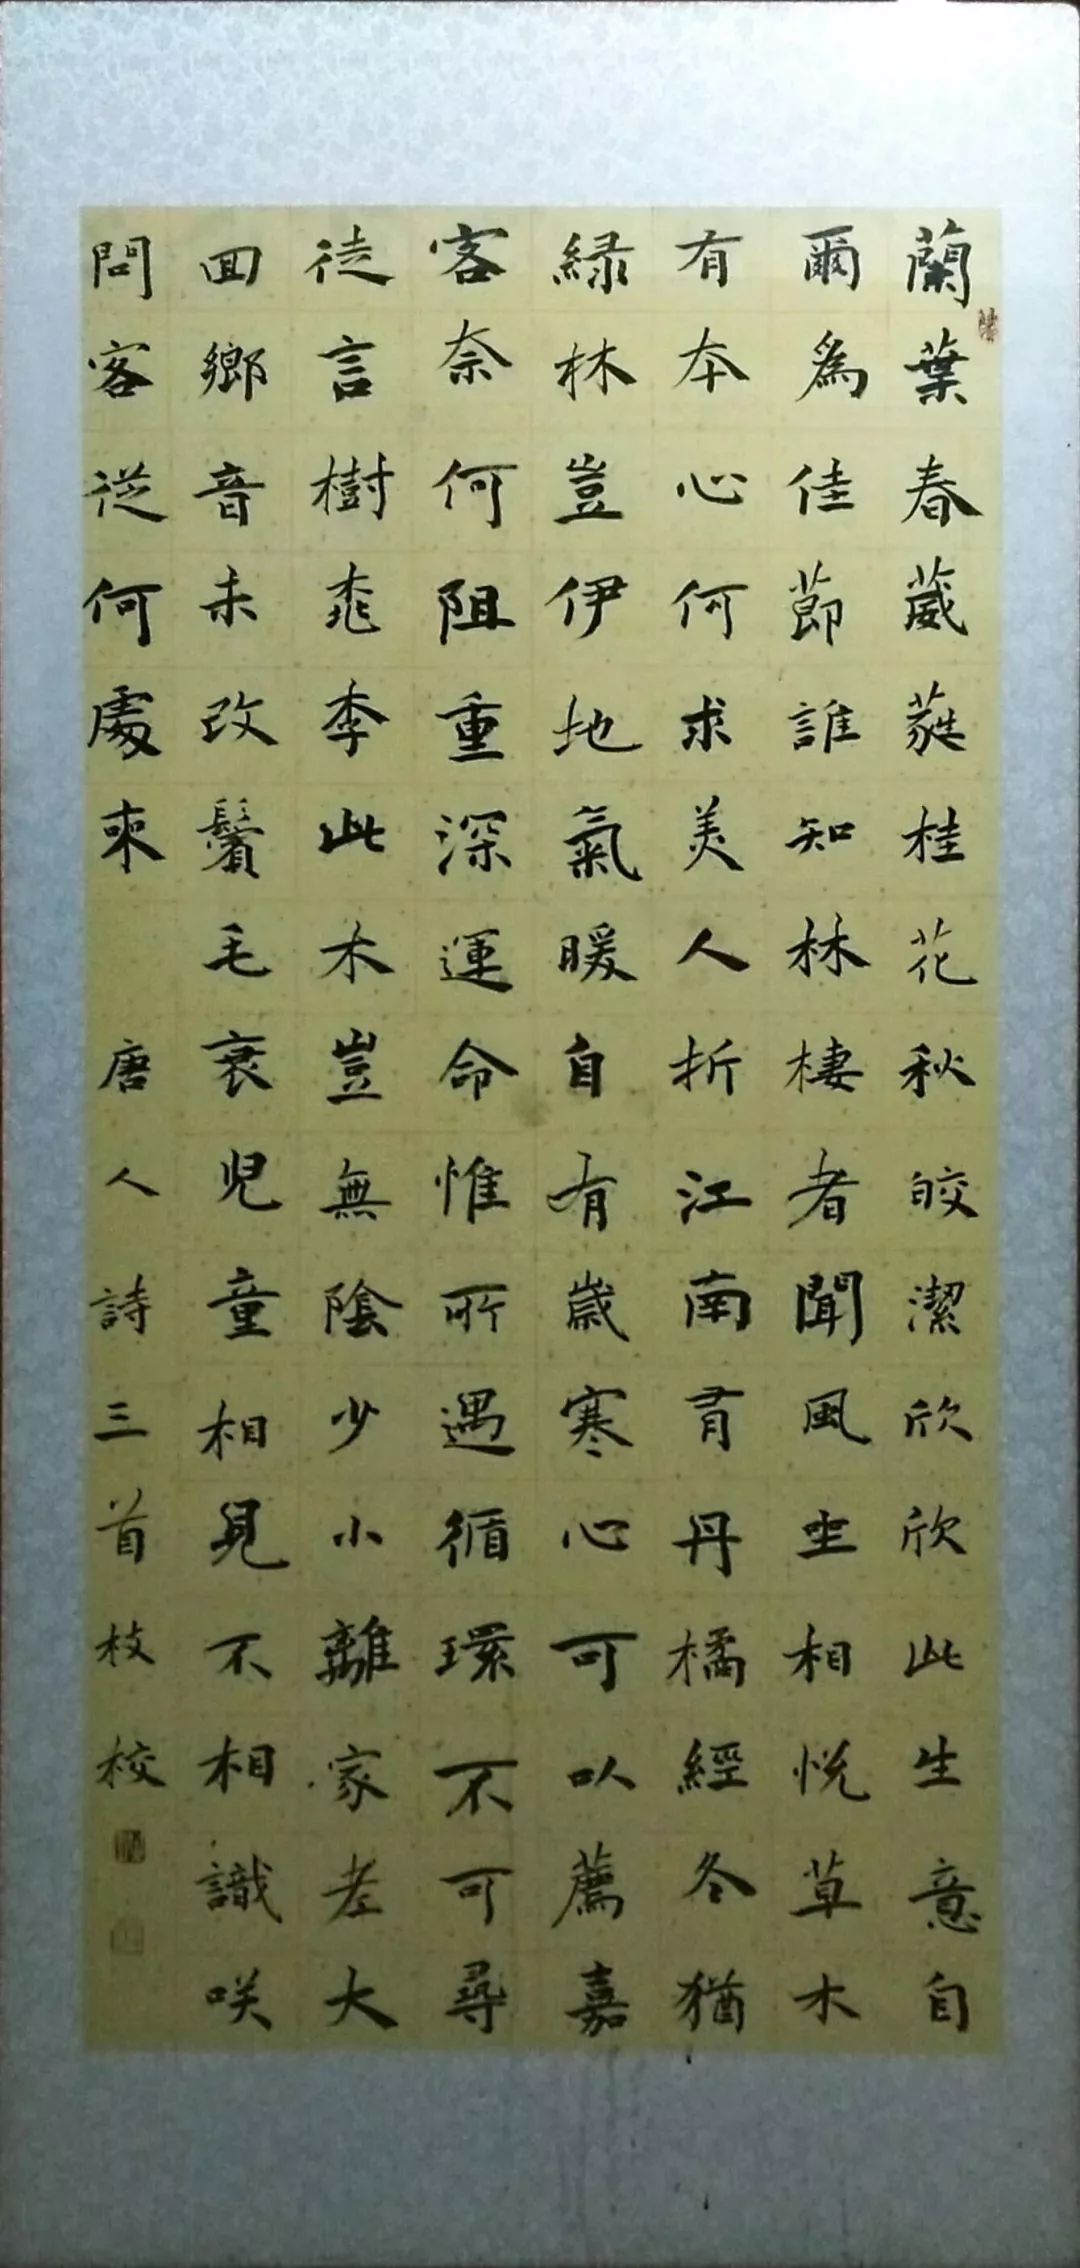 蘭葉春葳蕤桂花秋皎潔欣欣此生意自
爾為佳節誰知林棲者聞風坐相悅草木
有本心何求美人折江南有丹橘經冬猶
緑林豈伊地氣暖自有歲寒心可以薦嘉
客奈何阻重深運命惟所遇循環不可尋
徒言樹桃李此木豈無陰少小離家老大
回鄉音未改鬢毛衰兒童相見不相識咲
問客從何處來 唐人詩三首枝校